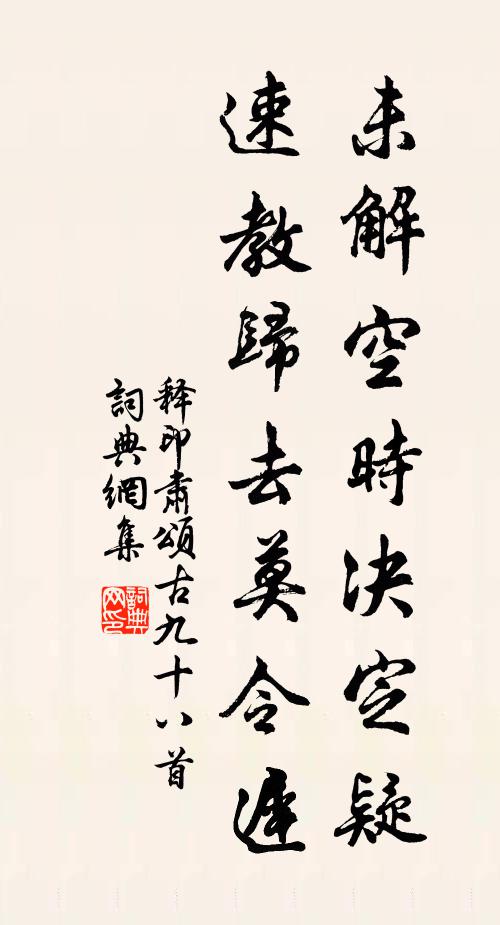 未解空時決定疑
速教歸去莫令遲
释印肅頌古九十八首
詞典網集
詞典网印